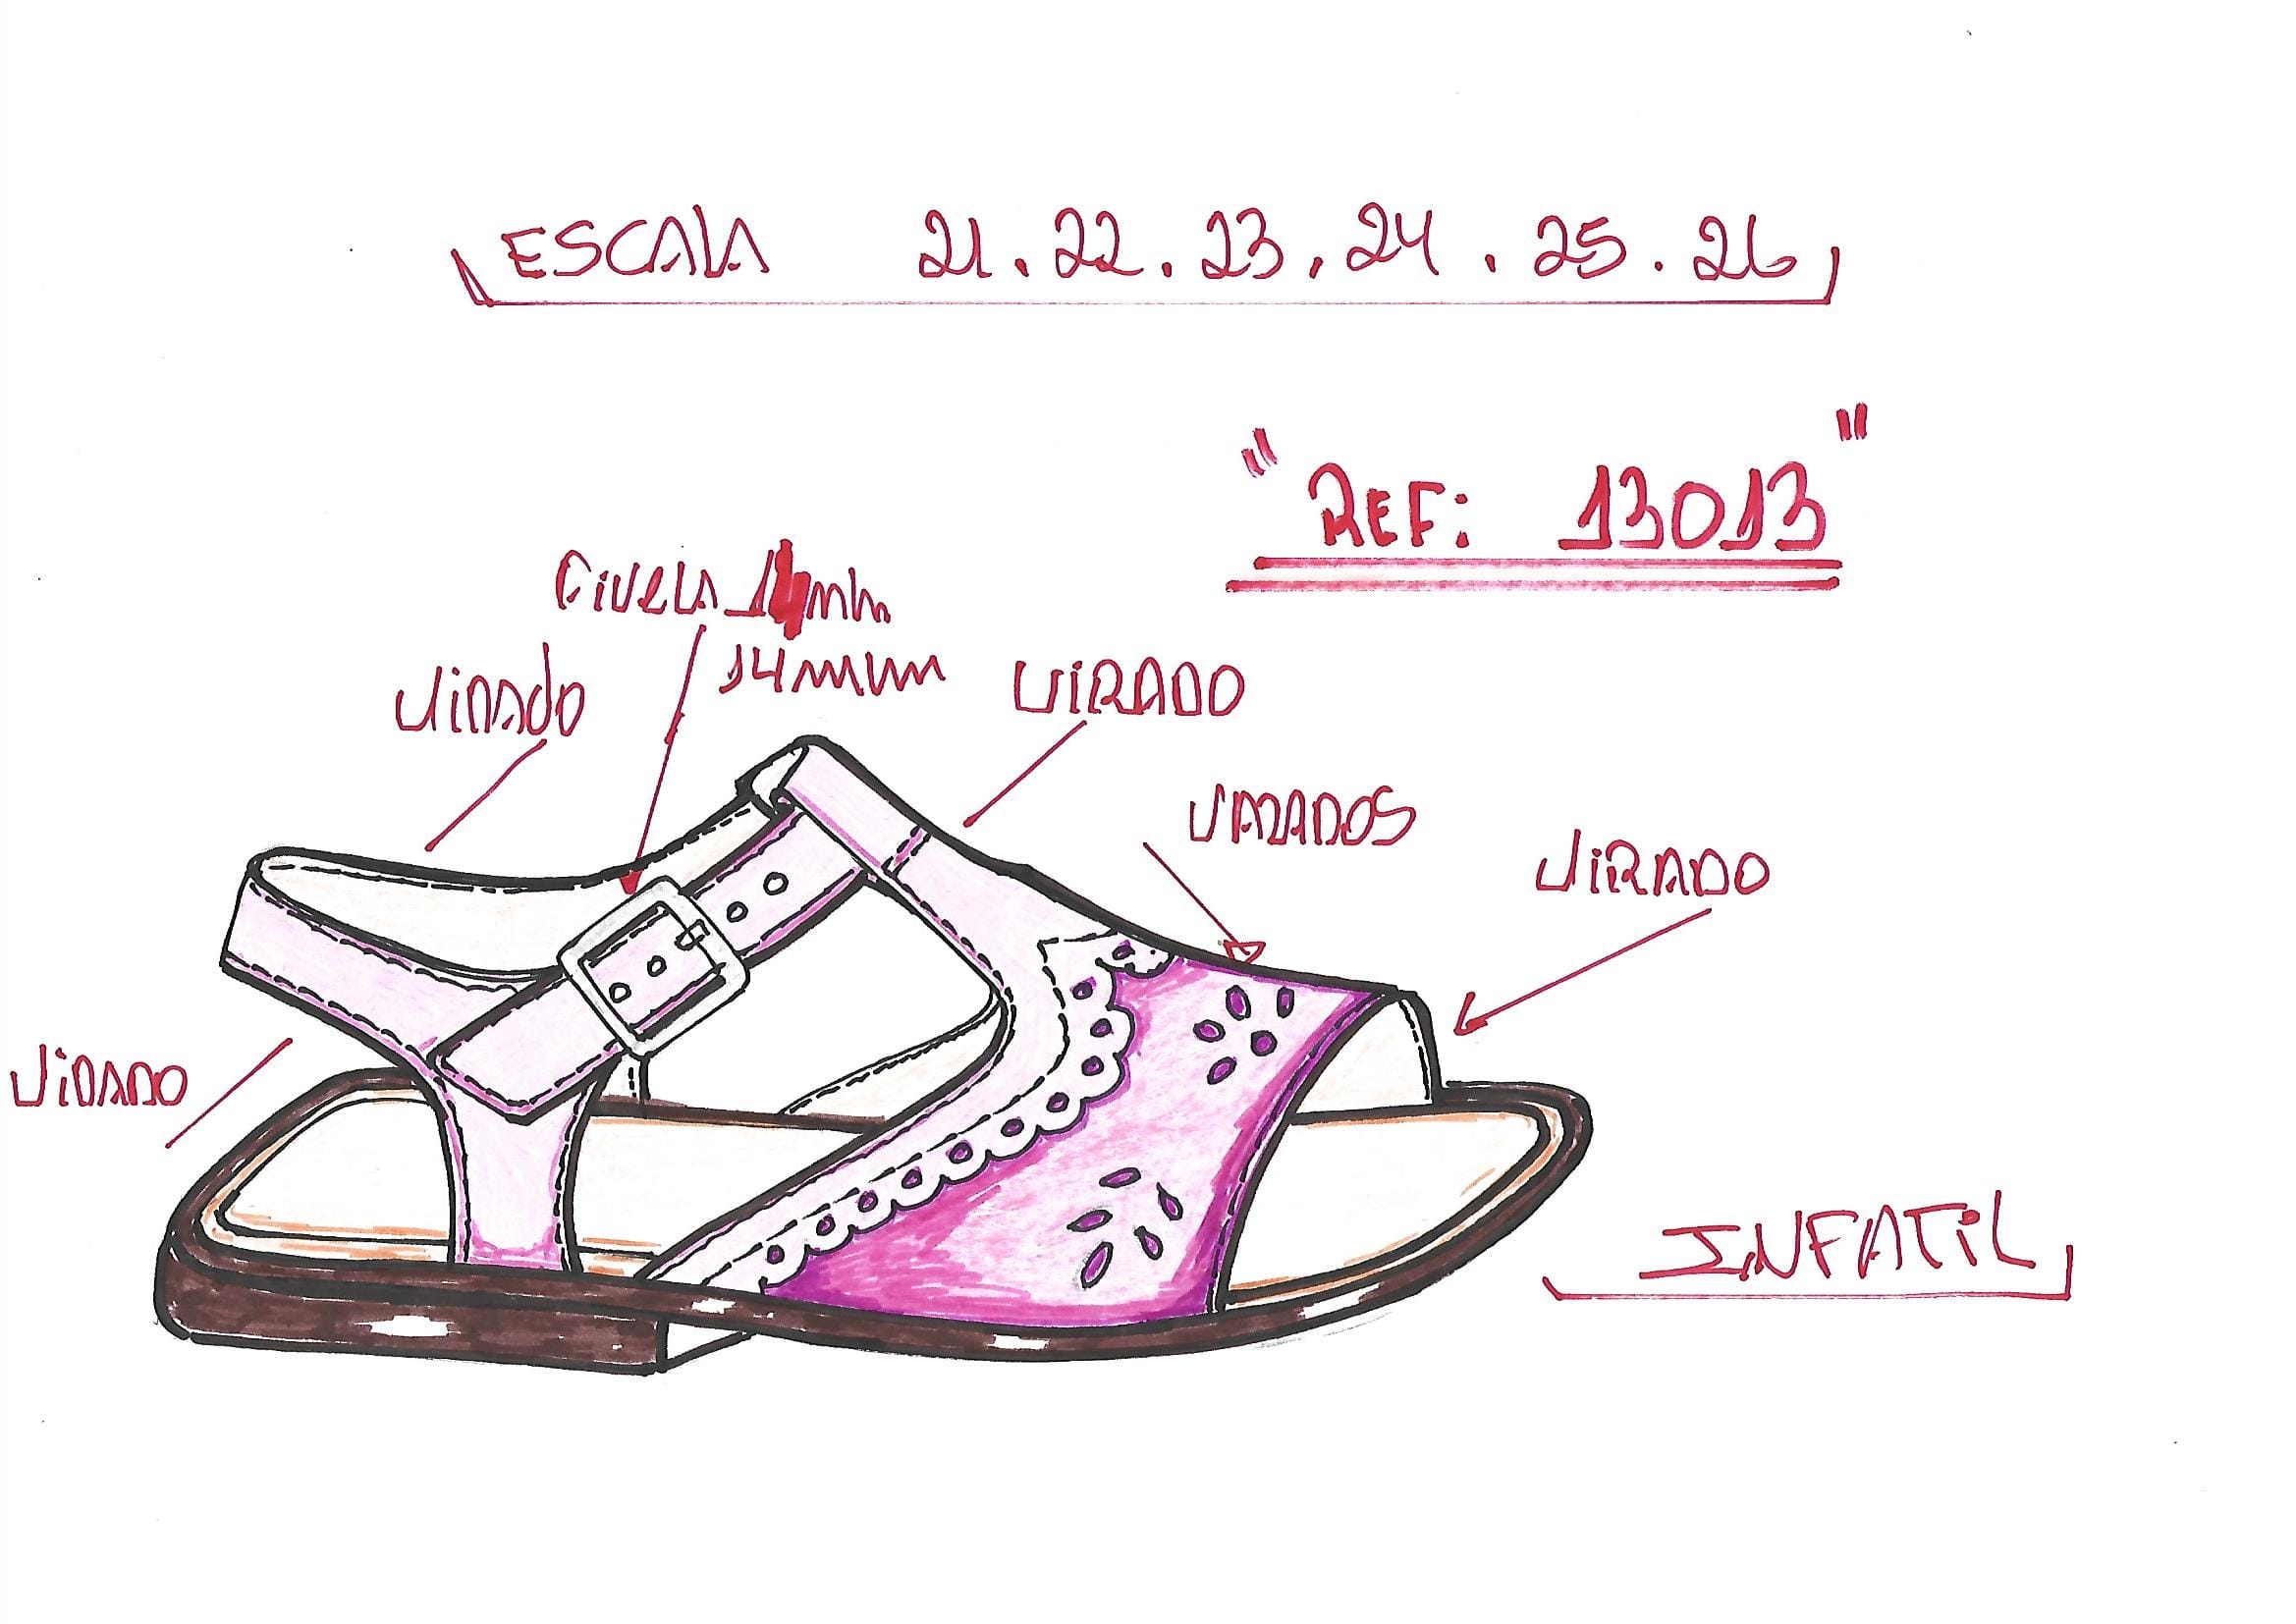 ESCALA 21.22.23.24.25.26
"REF: 13013"
Fivela mm
14mm
VIRADO
VIRADO
VAZADOS
VIRADO
VIRADO
INFATIL